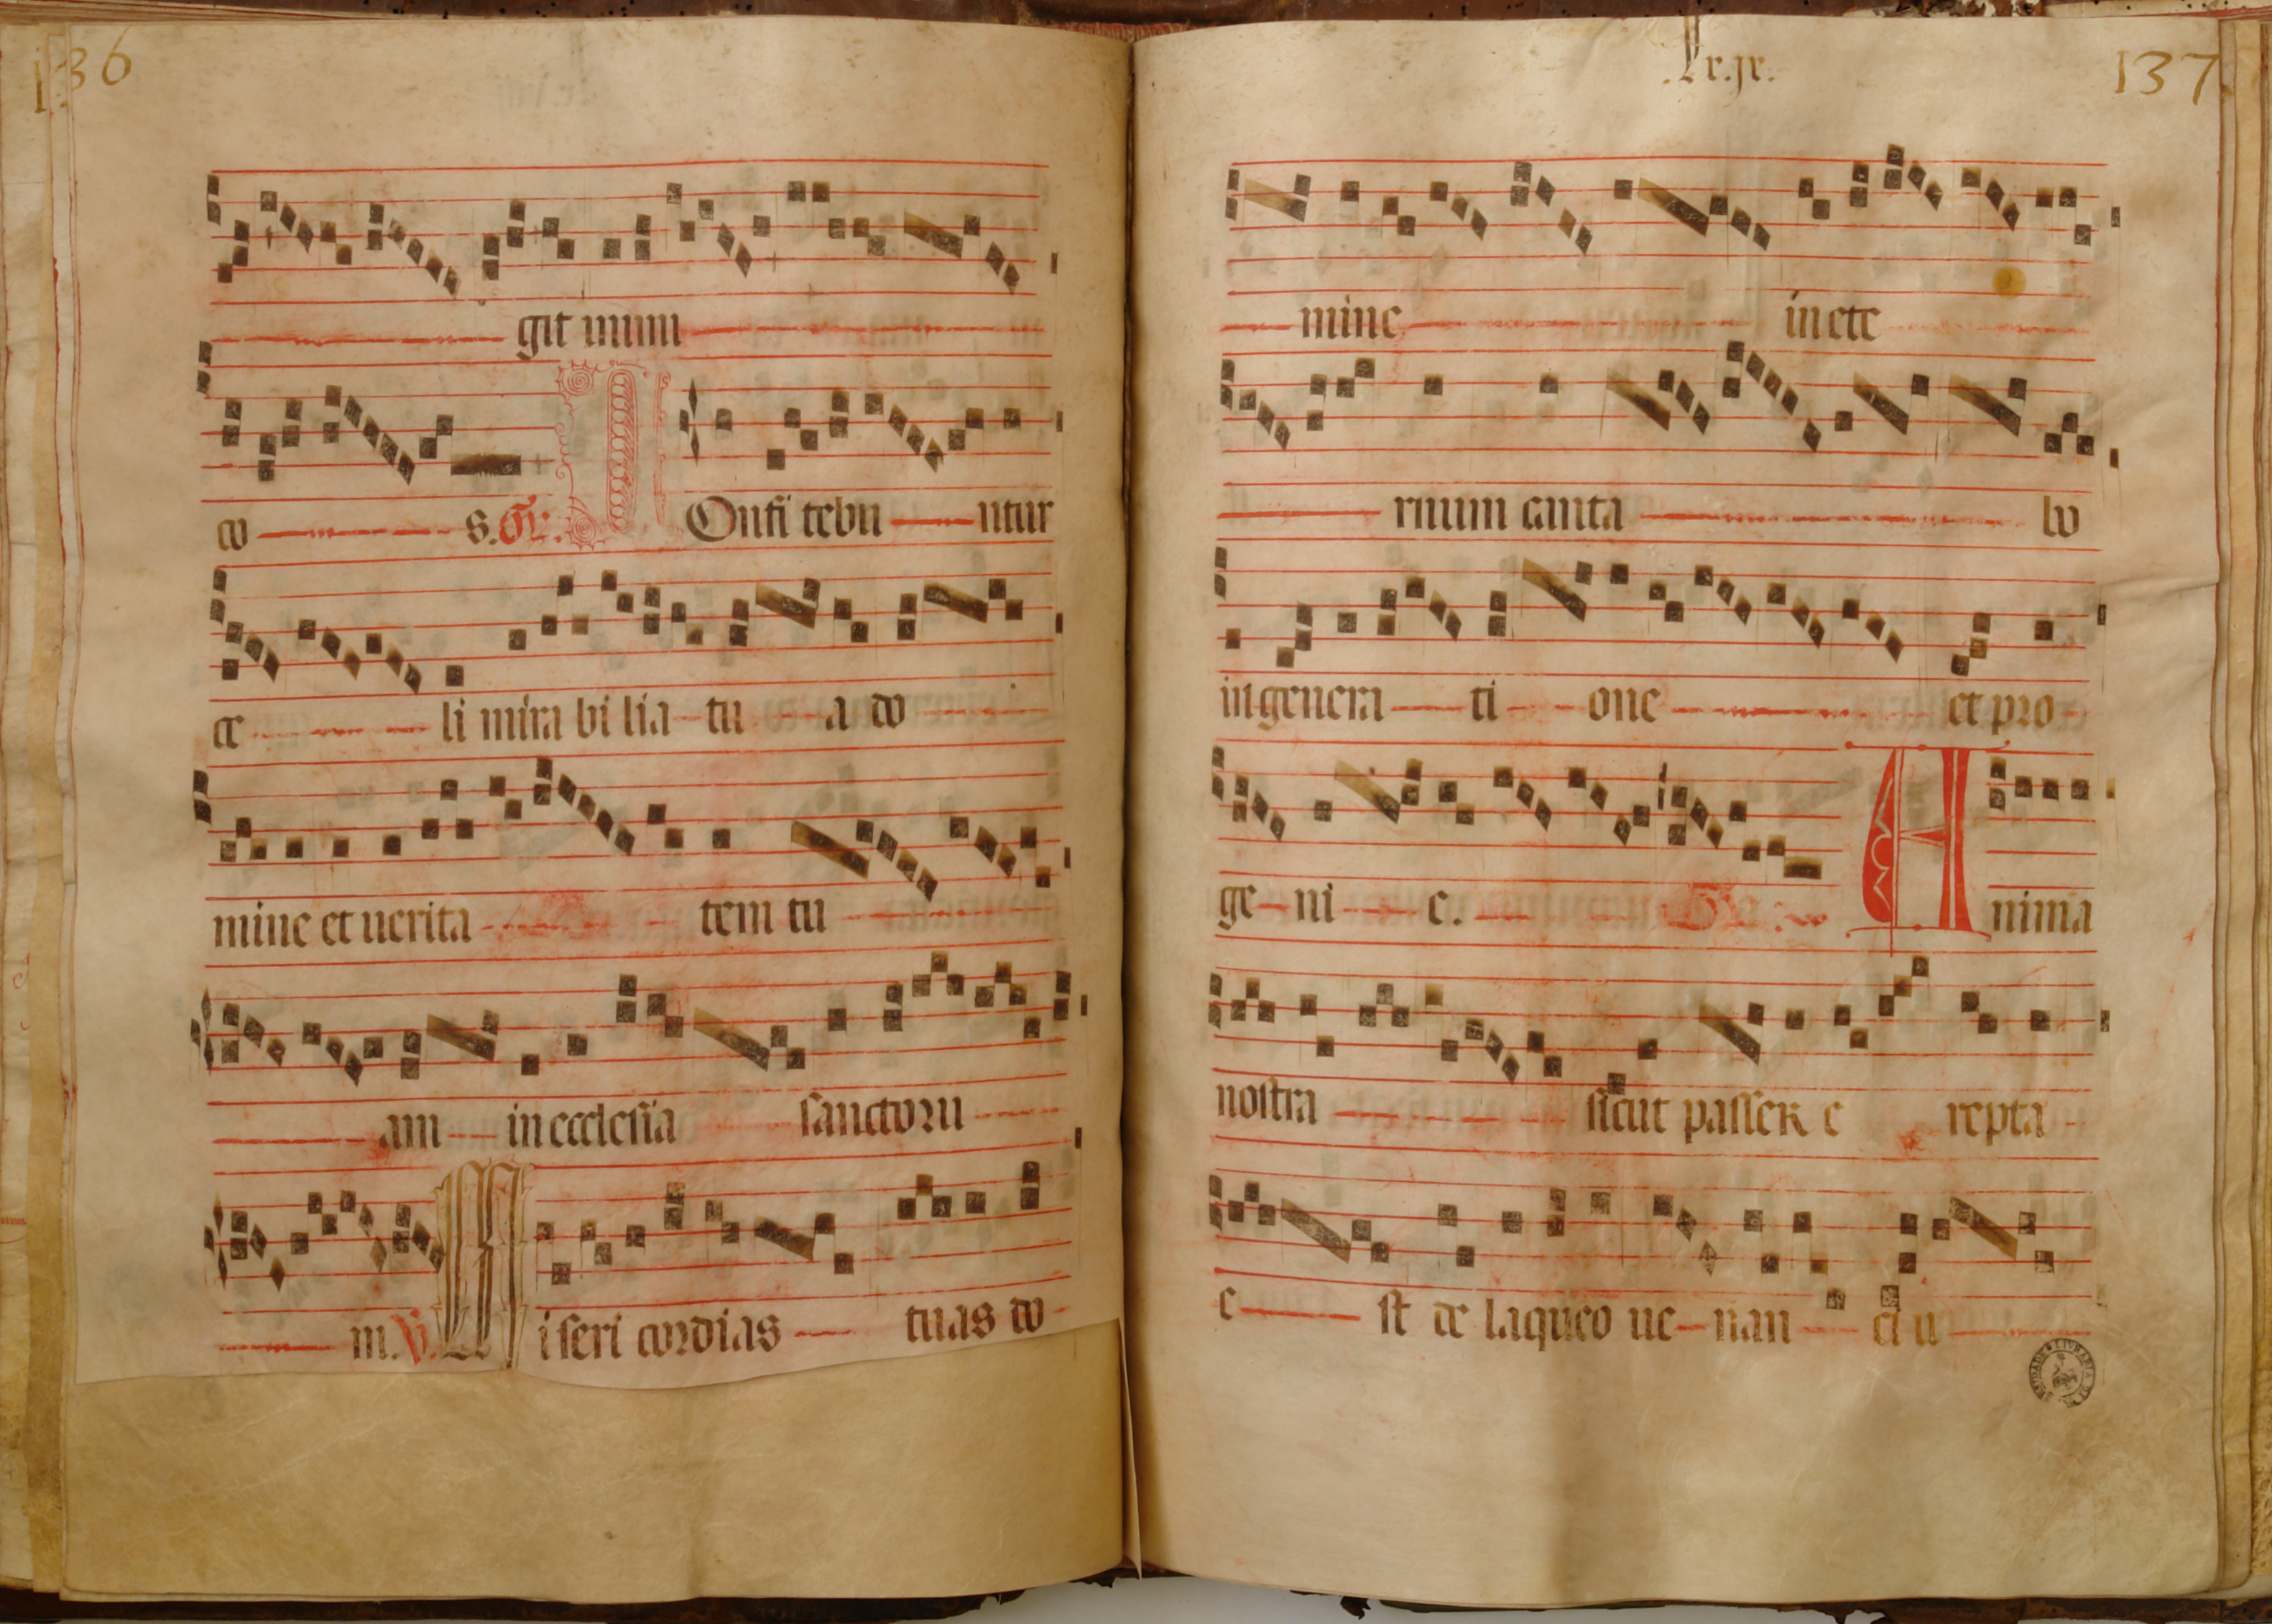 136
git mun
do s. Gr.
Confi tebu ntur
ce li mira bi lia tu a do
mine et uerita tem tu
am in ecclesia sanctoru
m. V. Miseri cordias tuas do
137
mine in ete
rnum canta bo
in genera ti one et pro
ge ni e. Anima
nostra sicut passer e repta
e st de laqueo ue nan ti u